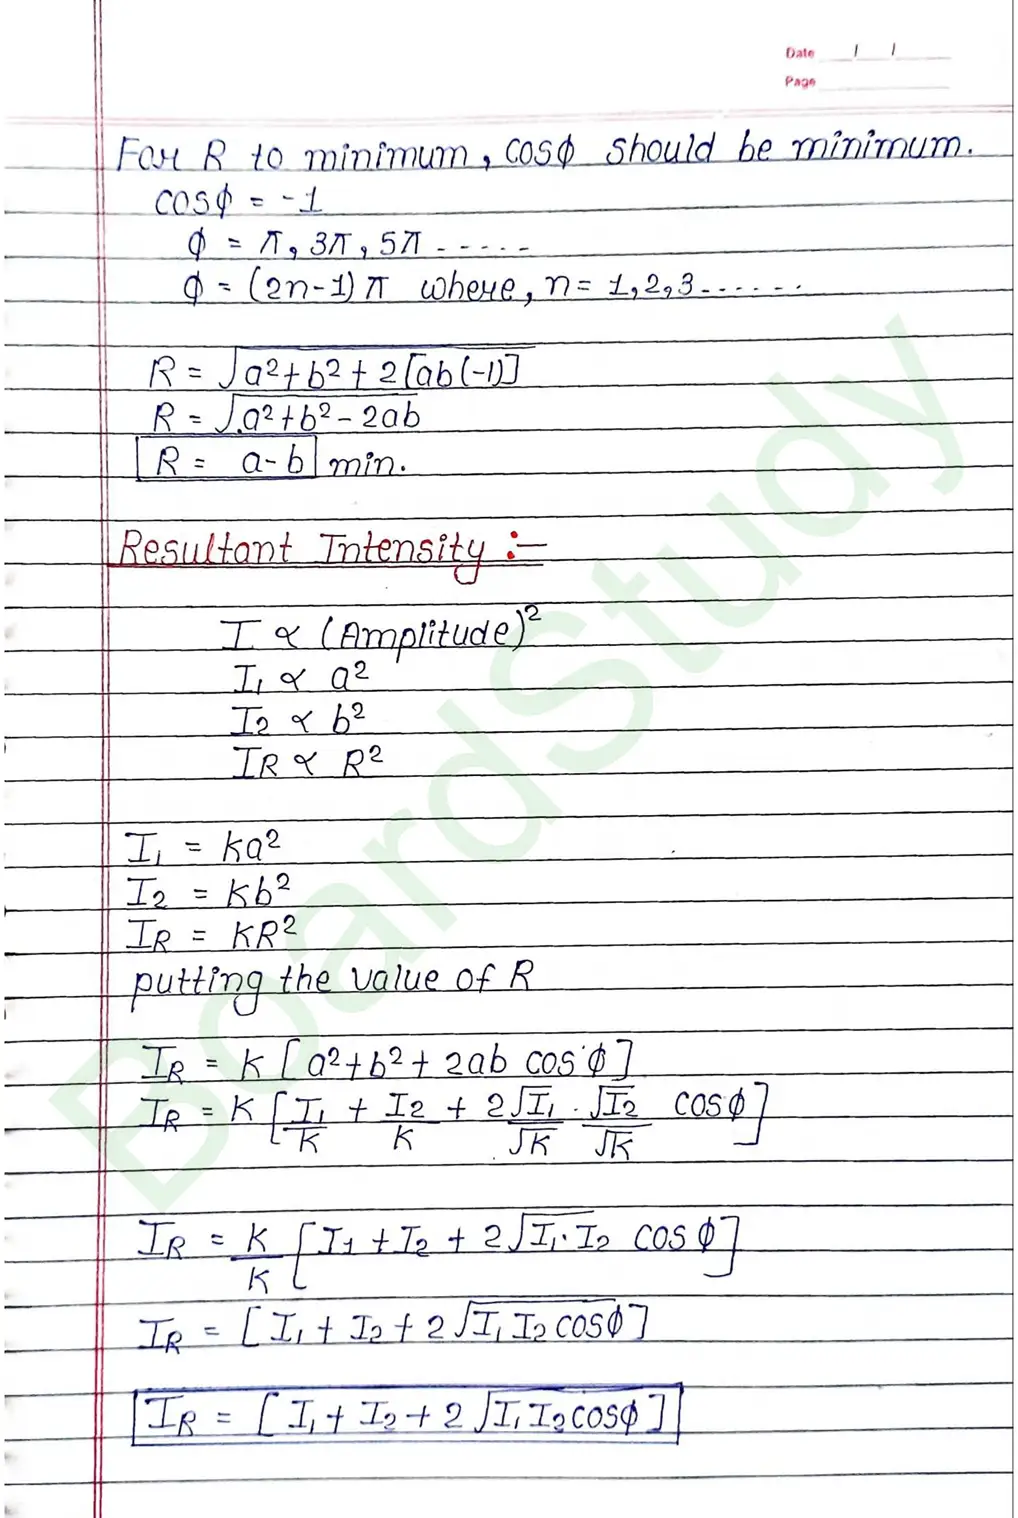 Date / /
Page
For R to minimum, cosϕ should be minimum.
cosϕ = -1
ϕ = π, 3π, 5π -----
ϕ = (2n-1) π where, n = 1, 2, 3 ------
R = √a²+b²+2[ab(-1)]
R = √a²+b²-2ab
R = a-b min.
Resultant Intensity :-
I ∝ (Amplitude)²
I₁ ∝ a²
I₂ ∝ b²
IR ∝ R²
I₁ = Ka²
I₂ = Kb²
IR = KR²
putting the value of R
IR = K [a²+b²+2ab cosϕ]
IR = K [I₁/K + I₂/K + 2√I₁/√K · √I₂/√K cosϕ]
IR = K/K [I₁+I₂+2√I₁·I₂ cosϕ]
IR = [I₁+I₂+2√I₁I₂cosϕ]
IR = [I₁+I₂+2√I₁I₂cosϕ]
BoardStudy